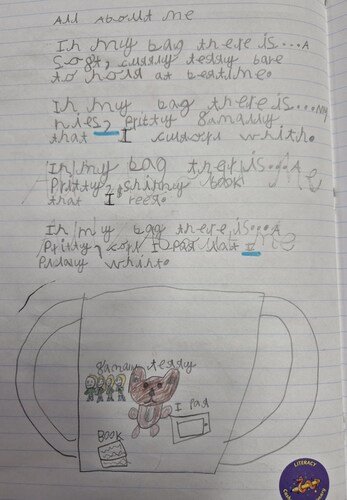 All About me
In my bag there is...A
Soft, cuddly teddy bare
to hold at bedtime.
In my bag there is...My
nies, pritty famally
that I cudort whith.
In my bag ther is...A
Pritty, shiny book
that I reed.
In my bag there is...A
Pritty, I Pad that I
Play whith.
famaly teddy
I Pad
Book
LITERACY